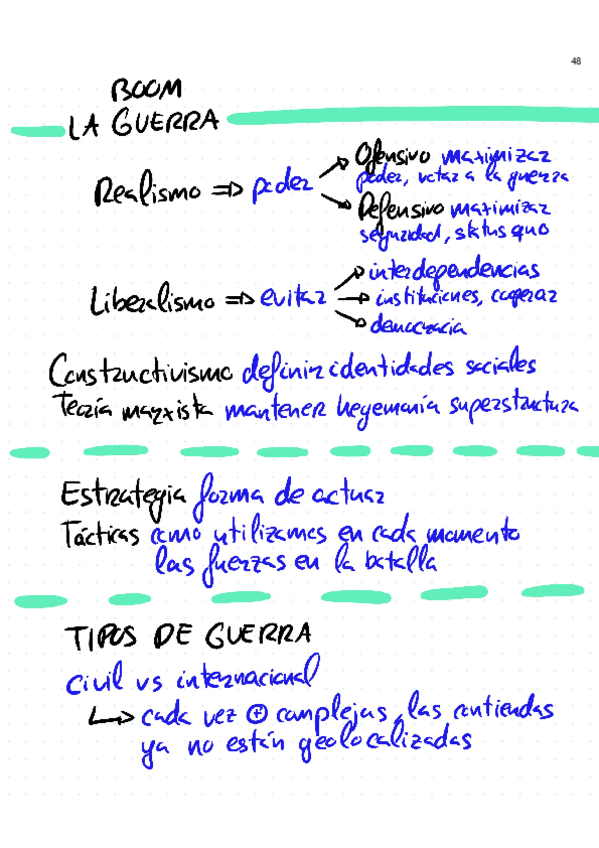 48
BOOM
LA GUERRA
Realismo ⇒ poder
Ofensivo maximizar
poder, votar a la guerra
Defensivo maximizar
seguridad, status quo
Liberalismo ⇒ evitar
interdependencias
instituciones, cooperar
democracia
Constructivismo definir identidades sociales
Teoría marxista mantener hegemonía superstructura
Estrategia forma de actuar
Tácticas como utilizamos en cada momento
las fuerzas en la batalla
TIPOS DE GUERRA
civil vs internacional
↳ cada vez ⊕ complejas, las contiendas
ya no están geolocalizadas